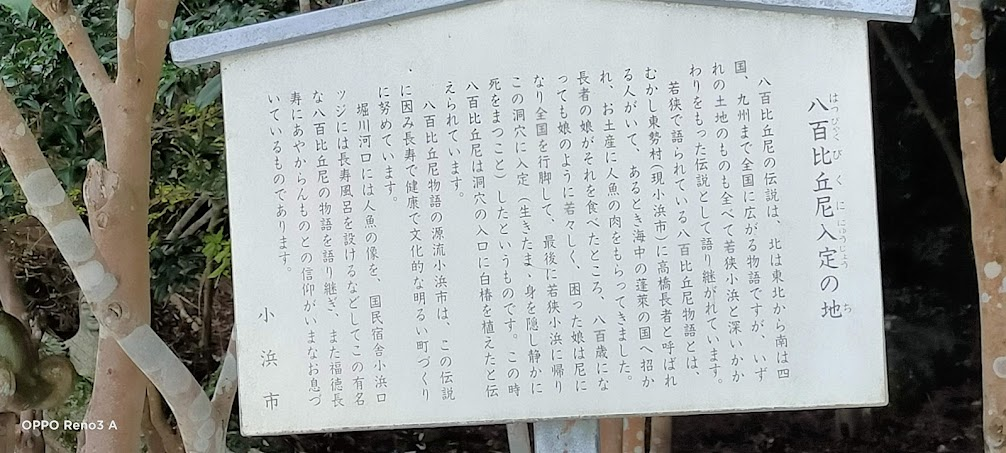 八百比丘尼入定の地
はっぴゃくびくににゅうじょうち
八百比丘尼の伝説は、北は東北から南は四
国、九州まで全国に広がる物語ですが、いず
れの土地のものも全べて若狭小浜と深いかか
わりをもった伝説として語り継がれています。
若狭で語られている八百比丘尼物語とは、
むかし東勢村(現小浜市)に高橋長者と呼ばれ
る人がいて、あるとき海中の蓬萊の国へ招か
れ、お土産に人魚の肉をもらってきました。
長者の娘がそれを食べたところ、八百歳にな
っても娘のように若々しく、困った娘は尼に
なり全国を行脚して、最後に若狭小浜に帰り
この洞穴に入定(生きたまゝ身を隠し静かに
死をまつこと)したというものです。この時
八百比丘尼は洞穴の入口に白椿を植えたと伝
えられています。
八百比丘尼物語の源流小浜市は、この伝説
に因み長寿で健康で文化的な明るい町づくり
に努めています。
堀川河口には人魚の像を、国民宿舎小浜ロ
ッジには長寿風呂を設けるなどしてこの有名
な八百比丘尼の物語を語り継ぎ、また福徳長
寿にあやからんものとの信仰がいまなお息づ
いているものであります。
小浜市
OPPO Reno3 A